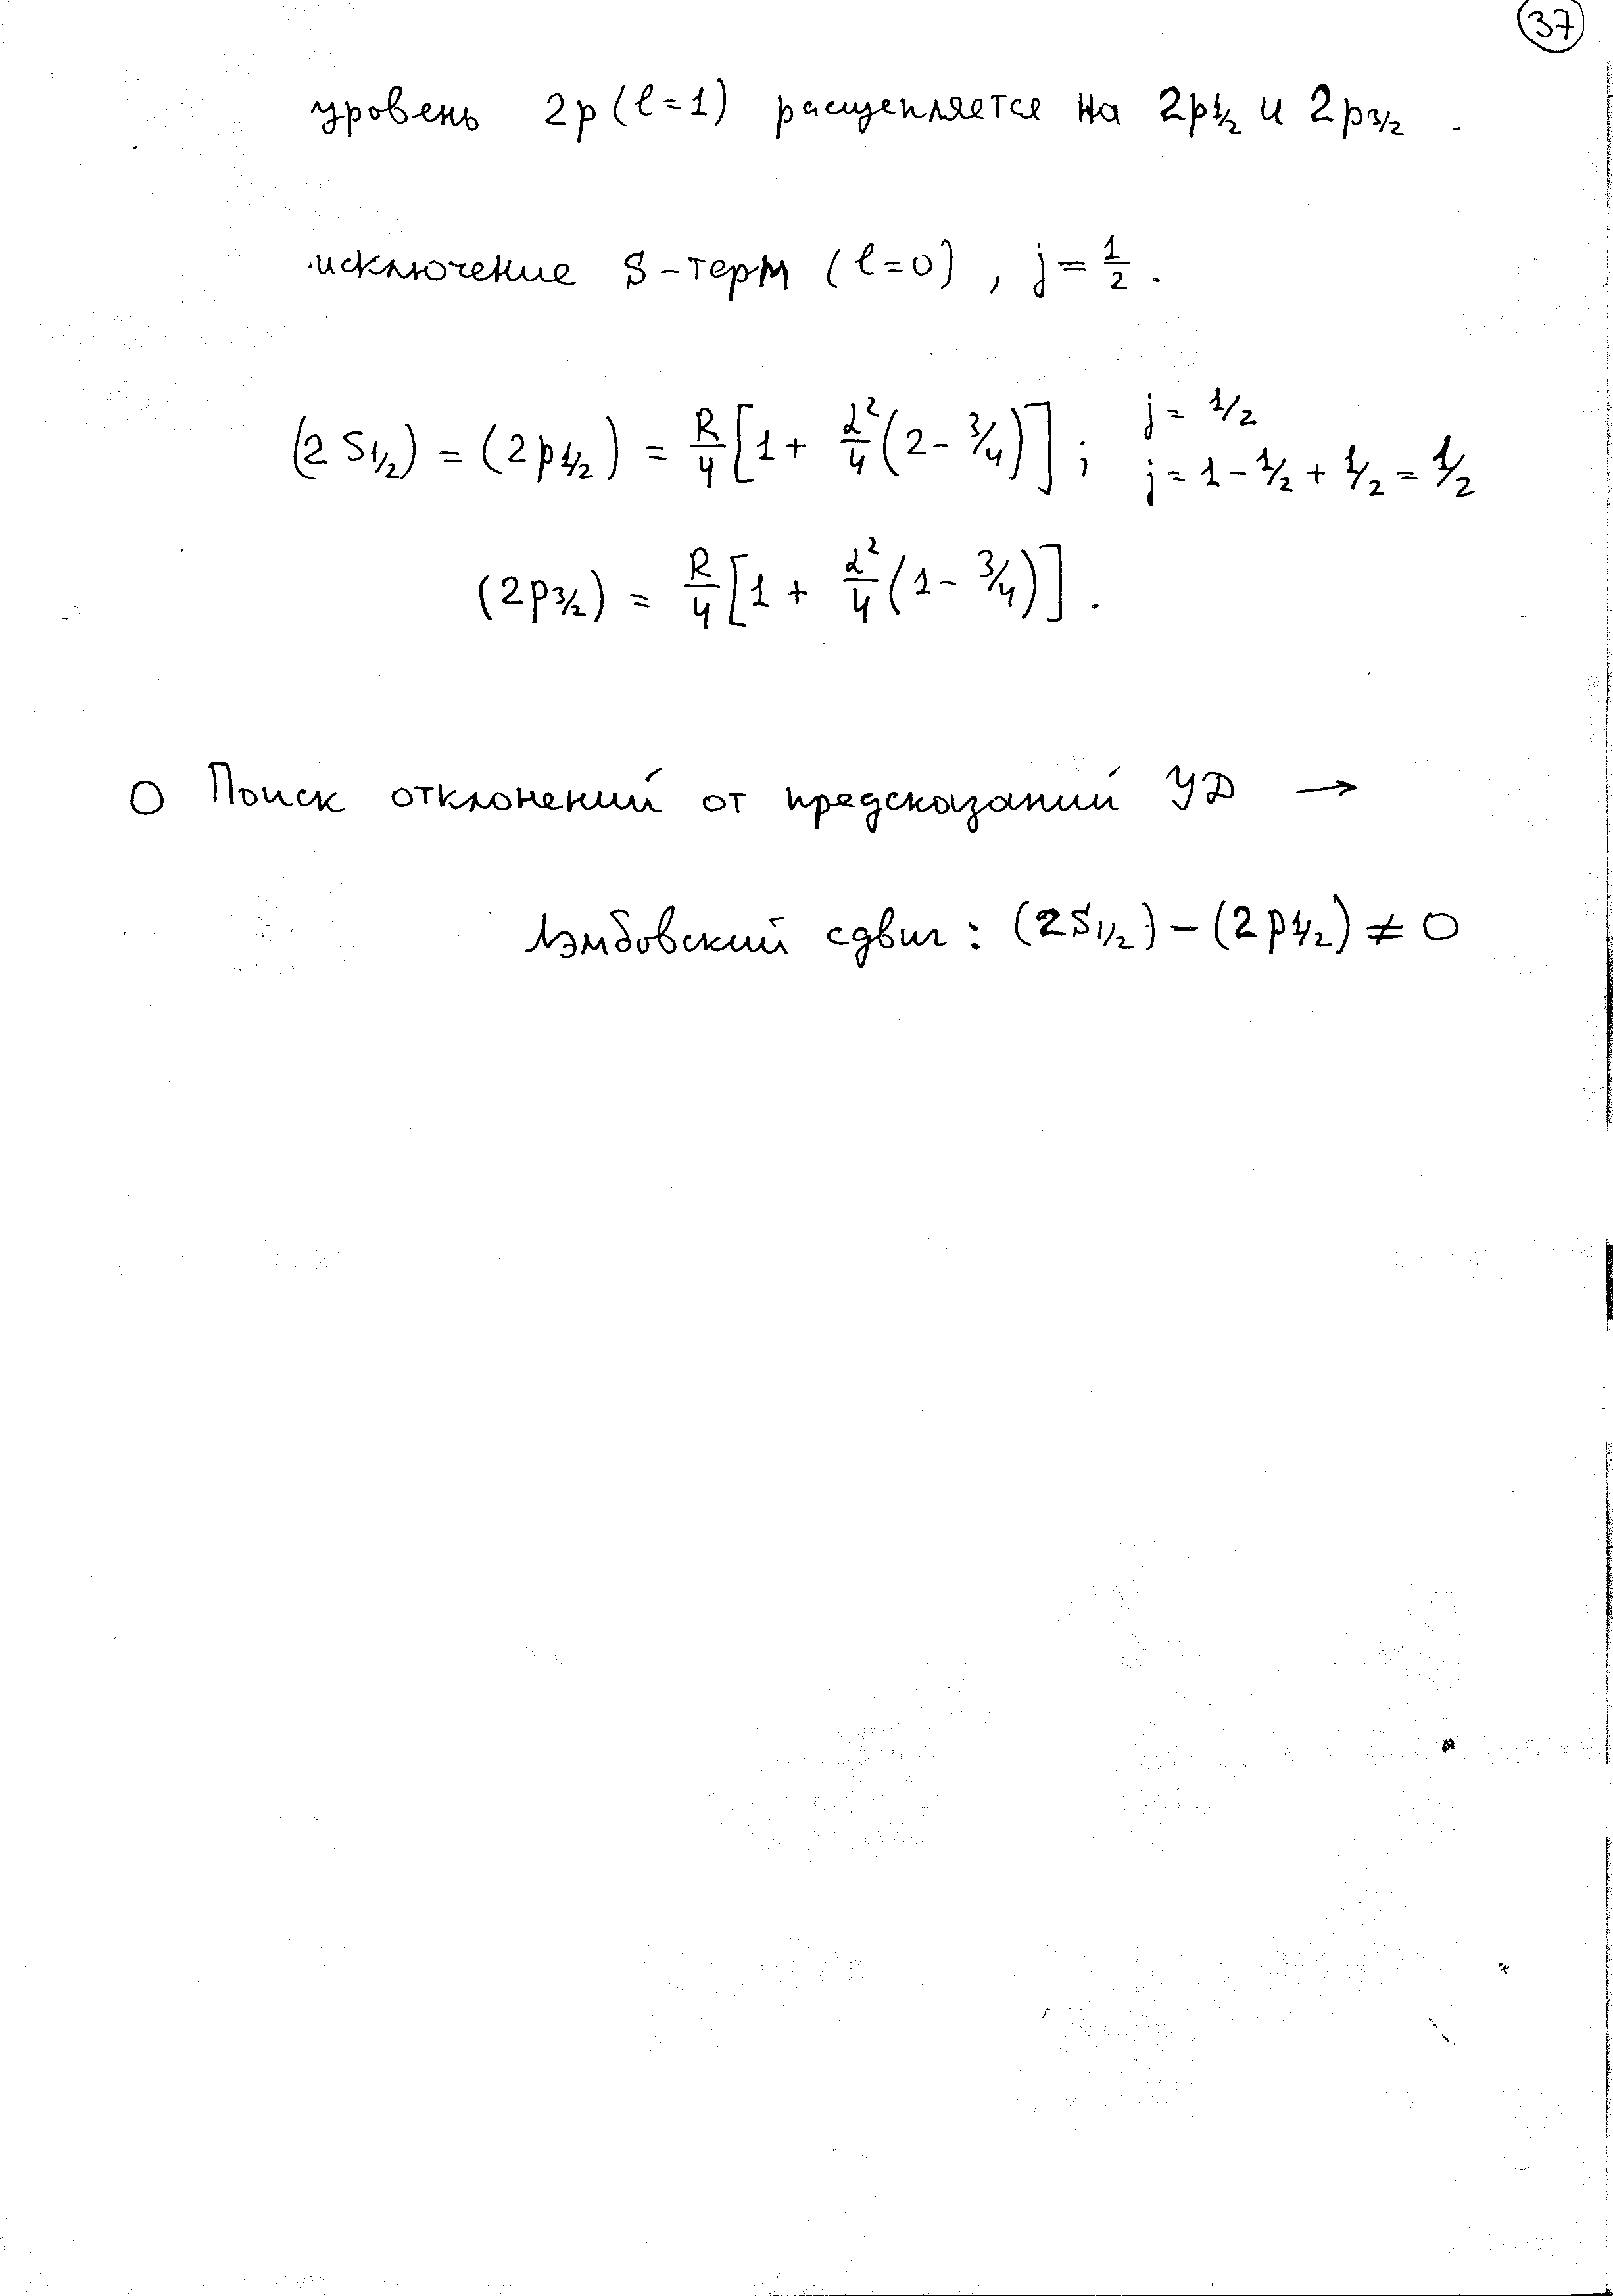 37
уровень 2p (l=1) расщепляется на 2p1/2 и 2p3/2 .
исключение S-терм (l=0) , j = 1/2 .
(2 S1/2) = (2p1/2) = R/4 [1 + α²/4 (2 - 3/4)] ; j = 1/2
j = 1 - 1/2 + 1/2 = 1/2
(2p3/2) = R/4 [1 + α²/4 (1 - 3/4)] .
О Поиск отклонений от предсказаний УД →
Лэмбовский сдвиг : (2S1/2) - (2p1/2) ≠ 0